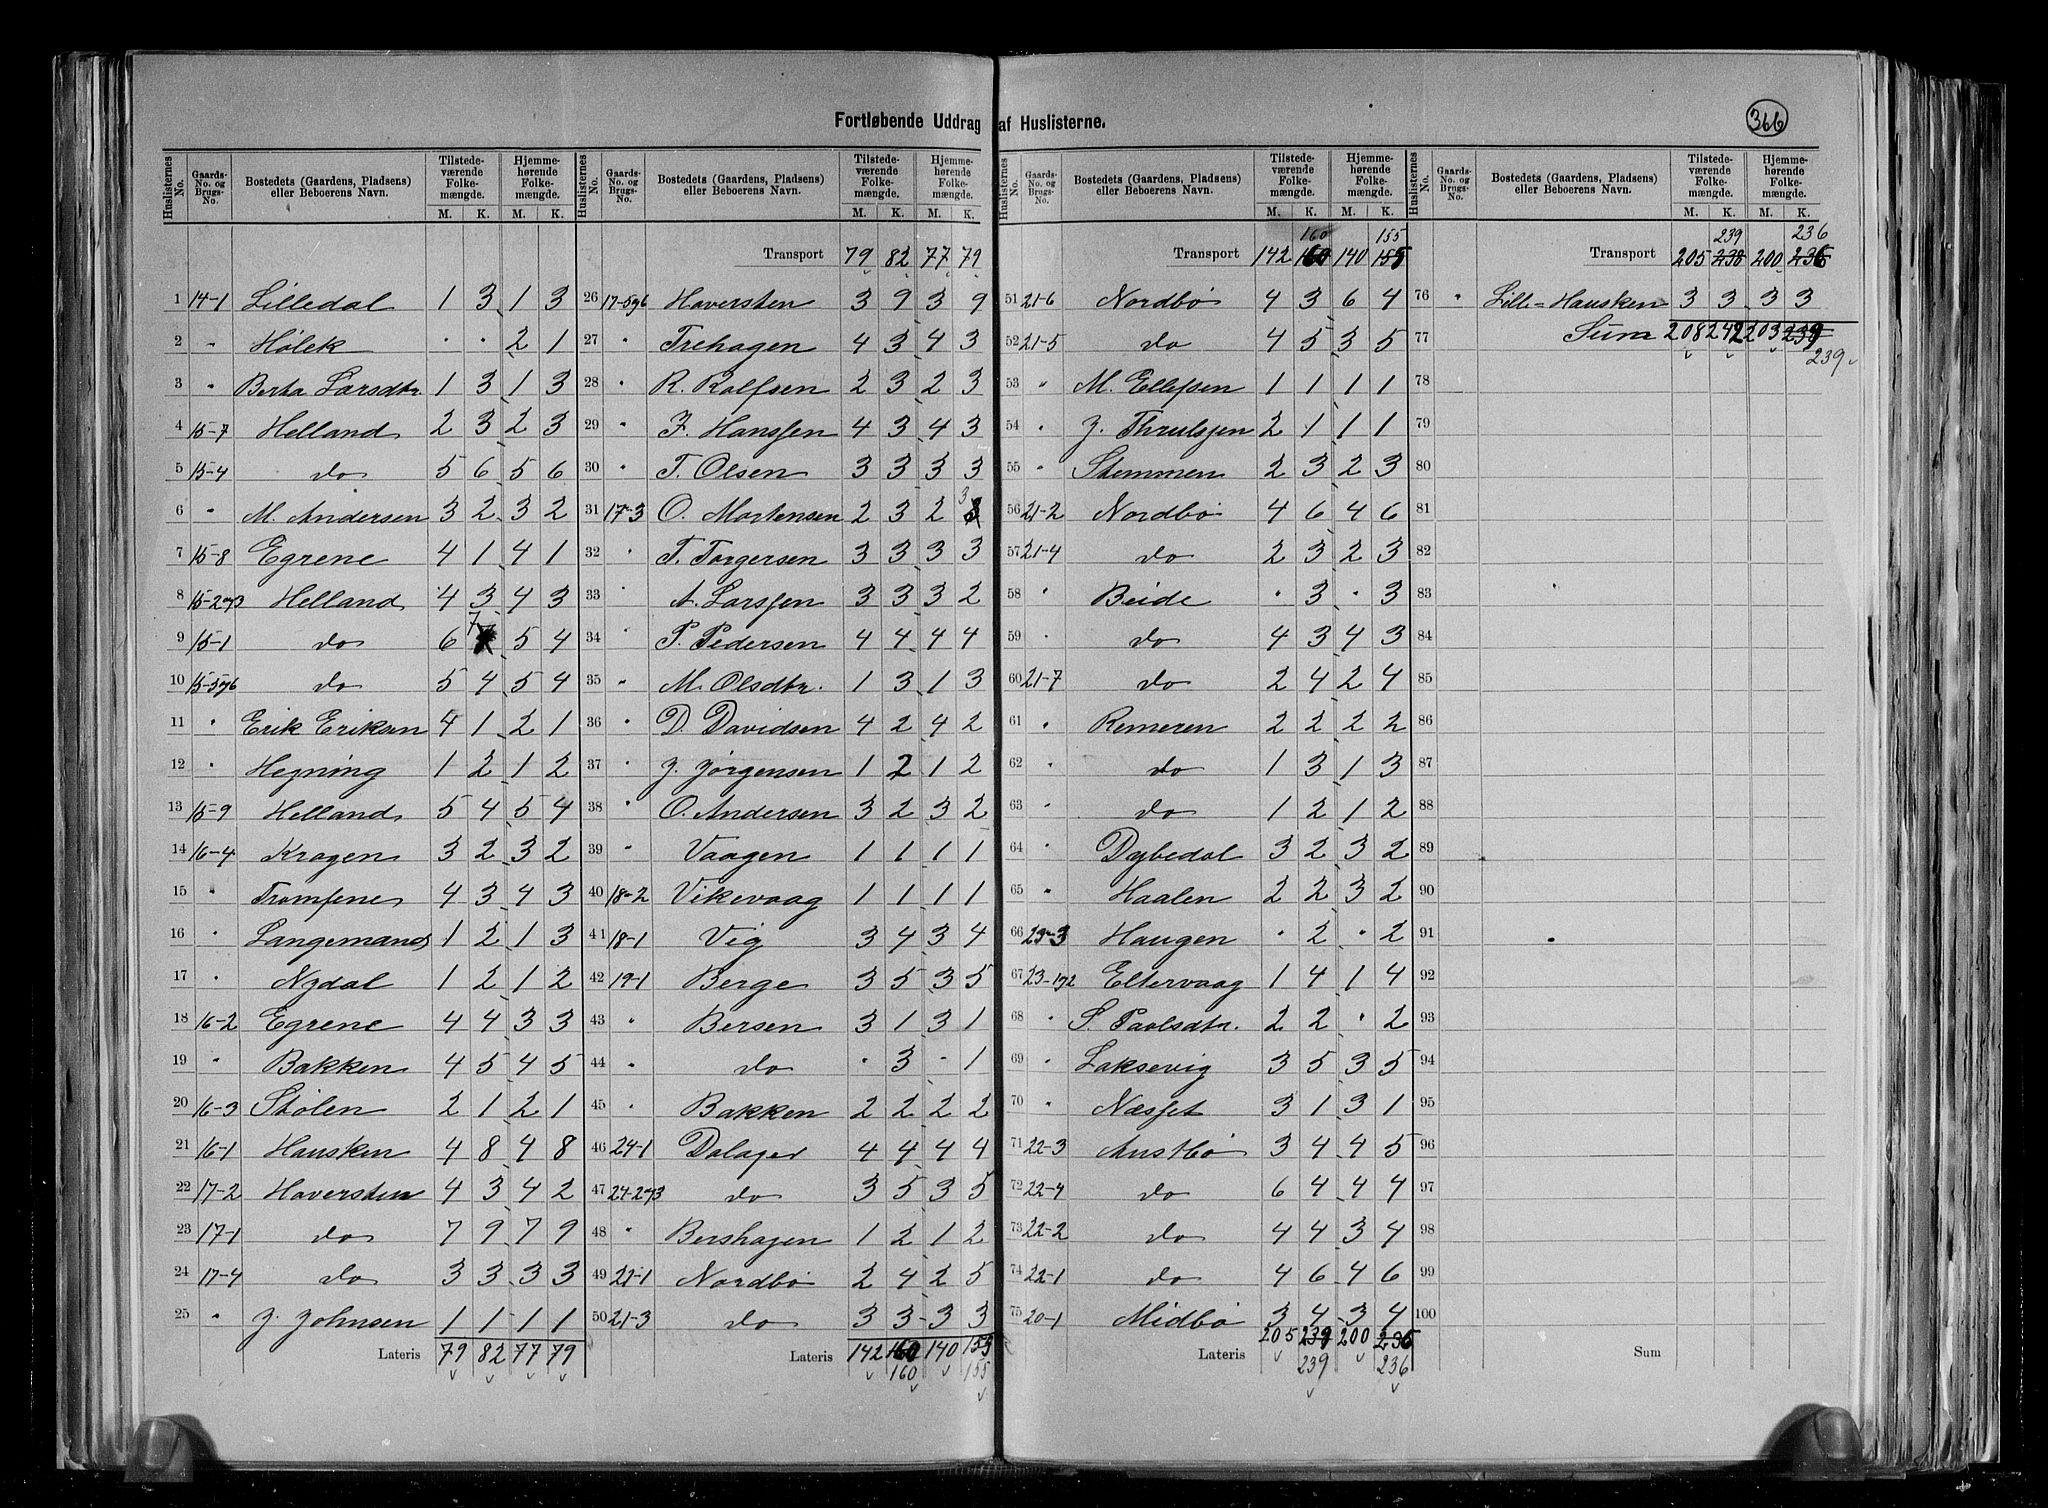 Fortløbende Uddrag af Huslisterne.
366
Huslisternes No. Gaards-No. og Brugs-No. Bostedets (Gaardens, Pladsens) eller Beboerens Navn. Tilstedeværende Folkemængde. M. K. Hjemmehørende Folkemængde. M. K.
1 14-1 Lilledal 1 3 1 3
2 " Hølek · · 2 1
3 " Berta Larsdtr. 1 3 1 3
4 15-7 Helland 2 3 2 3
5 15-4 do 5 6 5 6
6 " M. Andersen 3 2 3 2
7 15-8 Egrene 4 1 4 1
8 15-2og3 Helland 4 3 4 3
9 15-1 do 6 7 5 4
10 15-5og6 do 5 4 5 4
11 " Erik Eriksen 4 1 2 1
12 " Hegning 1 2 1 2
13 15-9 Helland 5 4 5 4
14 16-4 Kragen 3 2 3 2
15 " Tromsene 4 3 4 3
16 " Langemands 1 2 1 3
17 " Nydal 1 2 1 2
18 16-2 Egrene 4 4 3 3
19 " Bakken 4 5 4 5
20 16-3 Stølen 2 1 2 1
21 16-1 Hausken 4 8 4 8
22 17-2 Haversten 4 3 4 2
23 17-1 do 7 9 7 9
24 17-4 do 3 3 3 3
25 " J. Johnsen 1 1 1 1
Lateris 79 82 77 79
Huslisternes No. Gaards-No. og Brugs-No. Bostedets (Gaardens, Pladsens) eller Beboerens Navn. Tilstedeværende Folkemængde. M. K. Hjemmehørende Folkemængde. M. K.
Transport 79 82 77 79
26 17-5og6 Haversten 3 9 3 9
27 " Trehagen 4 3 4 3
28 " R. Rolfsen 2 3 2 3
29 " F. Hanssen 4 3 4 3
30 " T. Olsen 3 3 3 3
31 17-3 O. Mortensen 2 3 2 3
32 " T. Torgersen 3 3 3 3
33 " A. Larssen 3 3 3 2
34 " P. Pedersen 4 4 4 4
35 " M. Olsdtr. 1 3 1 3
36 " D. Davidsen 4 2 4 2
37 " J. Jörgensen 1 2 1 2
38 " O. Andersen 3 2 3 2
39 " Vaagen 1 1 1 1
40 18-2 Vikevaag 1 1 1 1
41 18-1 Vig 3 4 3 4
42 19-1 Berge 3 5 3 5
43 " Bersen 3 1 3 1
44 " do · 3 · 1
45 " Bakken 2 2 2 2
46 24-1 Dalager 4 4 4 4
47 24-2og3 do 3 5 3 5
48 " Bershagen 1 2 1 2
49 21-1 Nordbö 2 4 2 5
50 21-3 do 3 3 3 3
Lateris 142 160 140 155
160 155
Huslisternes No. Gaards-No. og Brugs-No. Bostedets (Gaardens, Pladsens) eller Beboerens Navn. Tilstedeværende Folkemængde. M. K. Hjemmehørende Folkemængde. M. K.
160 155
Transport 142 160 140 155
51 21-6 Nordbö 4 3 6 4
52 21-5 do 4 5 3 5
53 " M. Ellefsen 1 1 1 1
54 " J. Thrulssen 2 1 1 1
55 " Stemmen 2 3 2 3
56 21-2 Nordbö 4 6 4 6
57 21-4 do 2 3 2 3
58 " Beide · 3 · 3
59 " do 4 3 4 3
60 21-7 do 2 4 2 4
61 " Remeren 2 2 2 2
62 " do 1 3 1 3
63 " do 1 2 1 2
64 " Dybedal 3 2 3 2
65 " Haalen 2 2 3 2
66 23-3 Haugen · 2 · 2
67 23-1og2 Eltervaag 1 4 1 4
68 " S. Paulsdtr. 2 2 · 2
69 " Laksevig 3 5 3 5
70 " Næsset 3 1 3 1
71 22-3 Austbö 3 4 4 5
72 22-4 do 6 4 4 4
73 22-2 do 4 4 3 4
74 22-1 do 4 6 4 6
75 20-1 Midbö 3 4 3 4
Lateris 205 239 200 236
239 236
Huslisternes No. Gaards-No. og Brugs-No. Bostedets (Gaardens, Pladsens) eller Beboerens Navn. Tilstedeværende Folkemængde. M. K. Hjemmehørende Folkemængde. M. K.
239 236
Transport 205 238 200 236
76 " Lille-Hausken 3 3 3 3
77 Sum 208 242 203 239
239
78
79
80
81
82
83
84
85
86
87
88
89
90
91
92
93
94
95
96
97
98
99
100
Sum